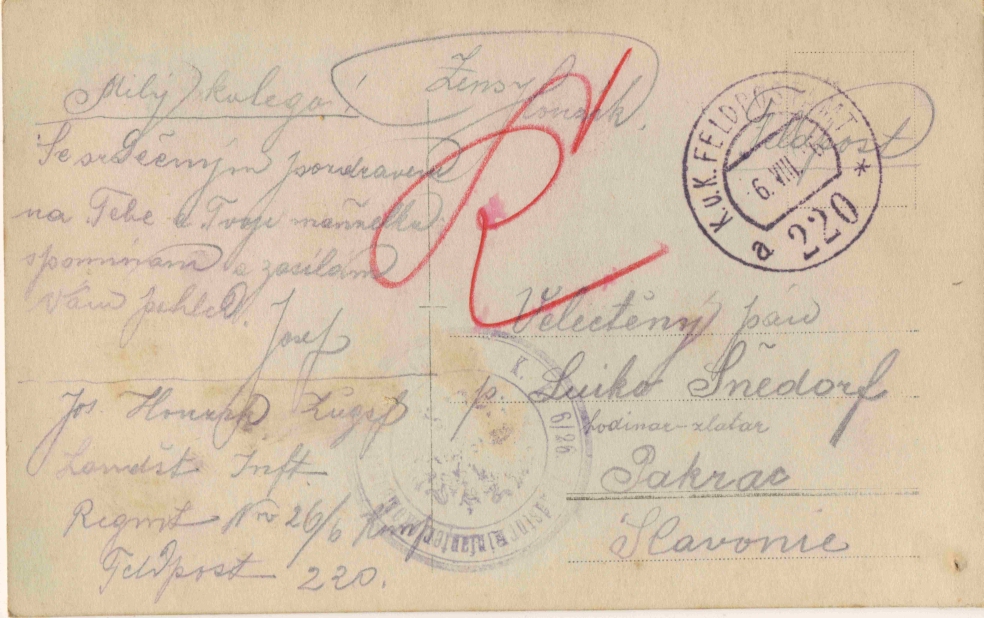 Milý kolego!
Se srdečným pozdravem
na Tebe a Tvoji manželku
spomínám a zasílám
Vám pohled.
Josef
Jos. Honzak Zugsf
Landšt Inft.
Regmt Nro 26/6 Kump
Feldpost 220.
Honzak.
R
Feldpost
K.U.K. FELDPOSTAMT
6. VIII.
a 220 *
Velectěný pán
p. Luiko Šnédorf
hodinar-zlatar
Pakrac
Slavonie
K. 6/26.